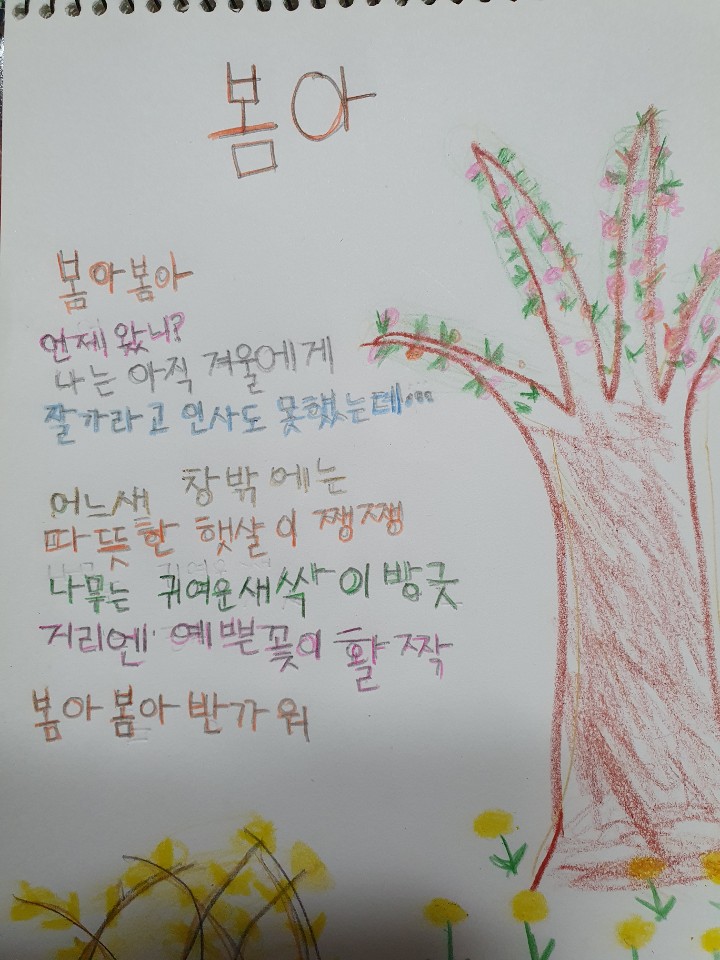 봄아
봄아봄아
언제 왔니?
나는 아직 겨울에게
잘가라고 인사도 못했는데...
어느새 창밖에는
따뜻한 햇살이 쨍쨍
나무는 귀여운새싹이 방긋
거리엔 예쁜꽃이 활짝
봄아 봄아 반가워